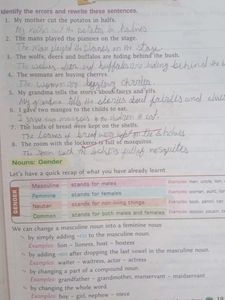 Identify the errors and rewrite these sentences.
1. My mother cut the potatos in halfs.
My mother cut the potatoes in halves
2. The mans played the pianoes on the stage.
The men played the pianos on the stage
3. The wolfs, deers and buffalos are hiding behind the bush.
hiding behind the
4. The womans are buying cherrys.
The women are buying cherries.
5. My grandma tells the story's about fairys and elfs.
My grandma tells the stories about fairies and
6. I gave two mangos to the childs to eat.
I gave two mangoes to the children to eat.
7. The loafs of bread were kept on the shelfs.
The loaves of bread were kept on the shelves
8. The room with the lockeres is full of mosquitos.
The room with the lockers full of mosquitoes
Nouns: Gender
Let's have a quick recap of what you have already learnt.
GENDER
Masculine stands for males
Feminine stands for females
Neuter stands for non-living things
Common stands for both males and females
We can change a masculine noun into a feminine noun
by simply adding -ess to the masculine noun.
Examples: lion – lioness, host – hostess
by adding -ess after dropping the last vowel in the masculine noun.
Examples: waiter – waitress, actor – actress
by changing a part of a compound noun.
Examples: grandfather – grandmother, manservant – maidservant
by changing the whole word.
Examples: boy – girl, nephew – niece